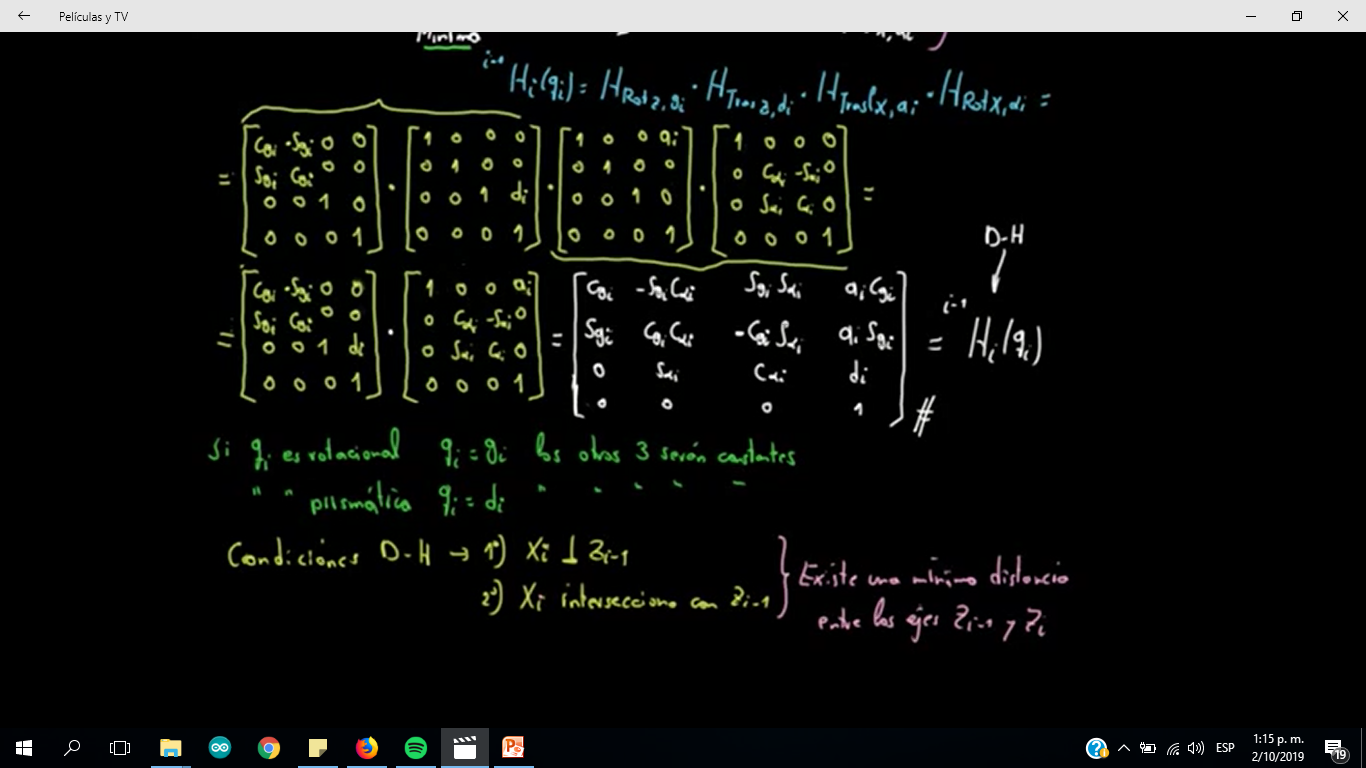 Películas y TV
Mínimo
i-1 Hi(qi) = HRotz,θi · HTrasz,di · HTraslx,ai · HRotx,αi =
= [Cθi -Sθi 0 0; Sθi Cθi 0 0; 0 0 1 0; 0 0 0 1] · [1 0 0 0; 0 1 0 0; 0 0 1 di; 0 0 0 1] · [1 0 0 ai; 0 1 0 0; 0 0 1 0; 0 0 0 1] · [1 0 0 0; 0 Cαi -Sαi 0; 0 Sαi Cαi 0; 0 0 0 1] =
D-H
= [Cθi -Sθi 0 0; Sθi Cθi 0 0; 0 0 1 di; 0 0 0 1] · [1 0 0 ai; 0 Cαi -Sαi 0; 0 Sαi Cαi 0; 0 0 0 1] = [Cθi -SθiCαi SθiSαi aiCθi; Sθi CθiCαi -CθiSαi aiSθi; 0 Sαi Cαi di; 0 0 0 1] = i-1 Hi(qi)
#
Si qi es rotacional qi = θi los otros 3 serán constantes
" " prismática qi = di " " " " "
Condiciónes D-H → 1º) Xi ⊥ Zi-1
2º) Xi intersecciona con Zi-1
Existe una mínima distancia
entre los ejes Zi-1 y Zi
ESP
1:15 p. m.
2/10/2019
19